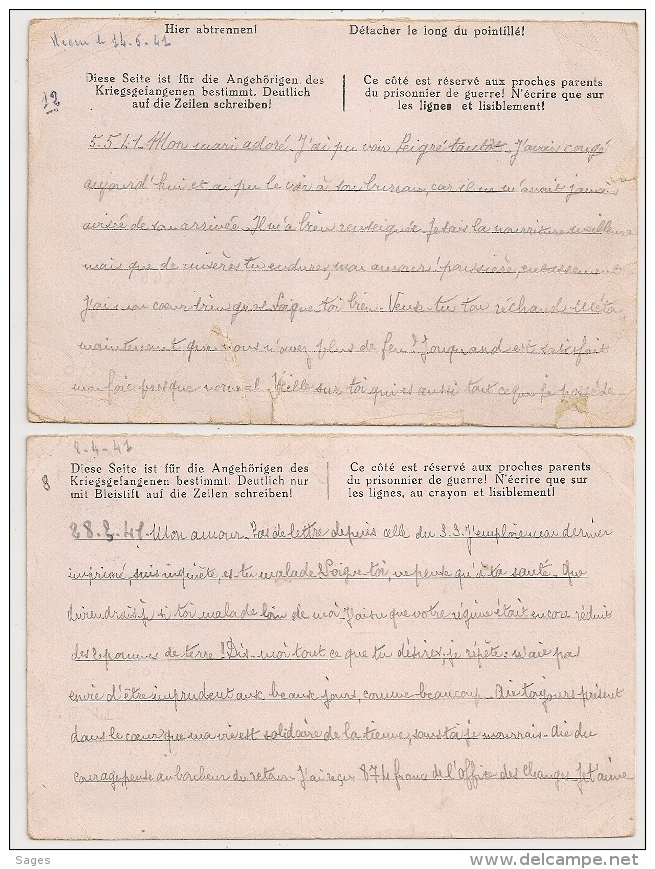 Hier abtrennen! Détacher le long du pointillé!
le 14.5.41
12
Diese Seite ist für die Angehörigen des
Kriegsgefangenen bestimmt. Deutlich
auf die Zeilen schreiben!
Ce côté est réservé aux proches parents
du prisonnier de guerre! N'écrire que sur
les lignes et lisiblement!
5.5.41. Mon mari adoré. J'ai pu voir Peigné tantôt. J'avais congé
aujourd'hui et ai pu le voir à son bureau, car il ne m'avait jamais
avisée de son arrivée. Il m'a bien renseignée. Je sais la nourriture meilleure
mais que de misères tu endures, mon amour! poussière, entassement
J'ai mon cœur bien gros Soigne-toi bien. Veux-tu ton réchaud Méta,
maintenant que vous n'avez plus de feu? est satisfait
mon foie presque normal. Veille sur toi qui es aussi tout ce que je possède.
8-4-41
8
Diese Seite ist für die Angehörigen des
Kriegsgefangenen bestimmt. Deutlich nur
mit Bleistift auf die Zeilen schreiben!
Ce côté est réservé aux proches parents
du prisonnier de guerre! N'écrire que sur
les lignes, au crayon et lisiblement!
28.3.41. Mon amour. Pas de lettre depuis celle du 3.3. J'emploie mon dernier
imprimé, suis inquiète, es-tu malade? Soigne-toi, ne pense qu'à ta santé. Que
deviendrais-je si toi malade loin de moi. J'ai su que votre régime était encore réduit
des pommes de terre! Dis-moi tout ce que tu désires, je répète: n'aie pas
envie d'être imprudent aux beaux jours, comme beaucoup. Aie toujours présent
dans le cœur que ma vie est solidaire de la tienne, sans ta je mourrais. Aie du
courage, pense au bonheur du retour. J'ai reçu 874 francs de l'Office des Changes. Je t'aime
Sages
www.delcampe.net